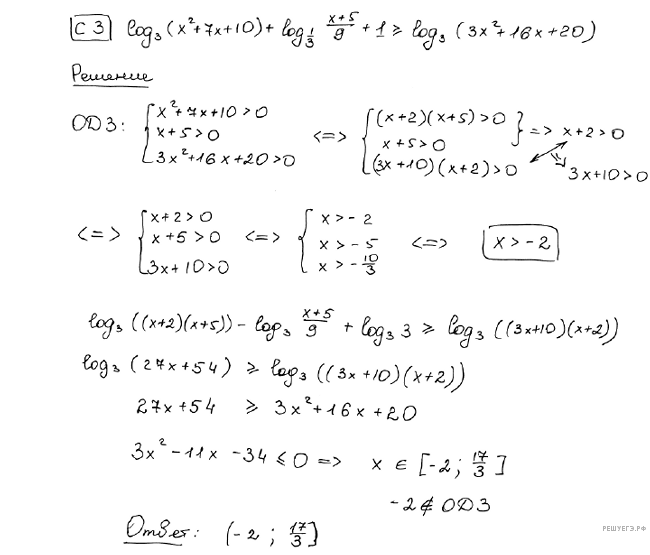 C 3 log₃(x²+7x+10) + log_{1/3} (x+5)/9 + 1 ≥ log₃(3x²+16x+20)
Решение
ОДЗ: { x²+7x+10>0; x+5>0; 3x²+16x+20>0 <=> { (x+2)(x+5)>0; x+5>0 } => x+2>0; (3x+10)(x+2)>0 => 3x+10>0
<=> { x+2>0; x+5>0; 3x+10>0 <=> { x>-2; x>-5; x>-10/3 <=> x>-2
log₃((x+2)(x+5)) - log₃ (x+5)/9 + log₃3 ≥ log₃((3x+10)(x+2))
log₃(27x+54) ≥ log₃((3x+10)(x+2))
27x+54 ≥ 3x²+16x+20
3x²-11x-34≤0 => x ∈ [-2; 17/3]
-2∉ОДЗ
Ответ: (-2; 17/3]
РЕШУЕГЭ.РФ